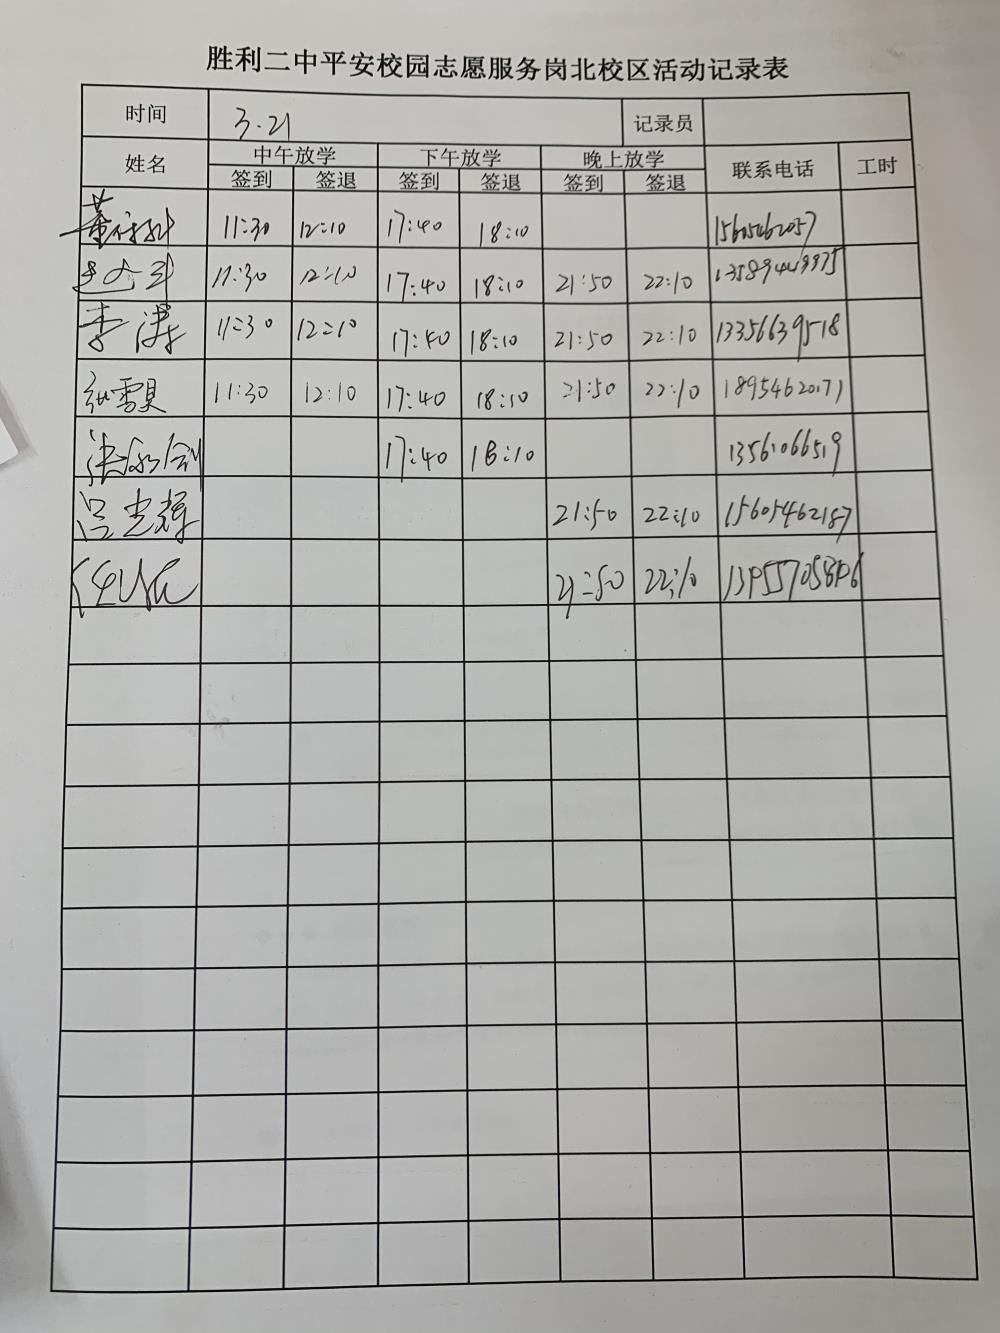 胜利二中平安校园志愿服务岗北校区活动记录表
时间 3.21 记录员
姓名 中午放学 下午放学 晚上放学 联系电话 工时
签到 签退 签到 签退 签到 签退
董 11:30 12:10 17:40 18:10
11:30 12:10 17:40 18:10 21:50 22:10
李涛 11:30 12:10 17:40 18:10 21:50 22:10 13356639518
张雪昊 11:30 12:10 17:40 18:10 21:50 22:10 18954620171
张 17:40 18:10 13561066519
吕光辉 21:50 22:10 15605462187
21:50 22:10